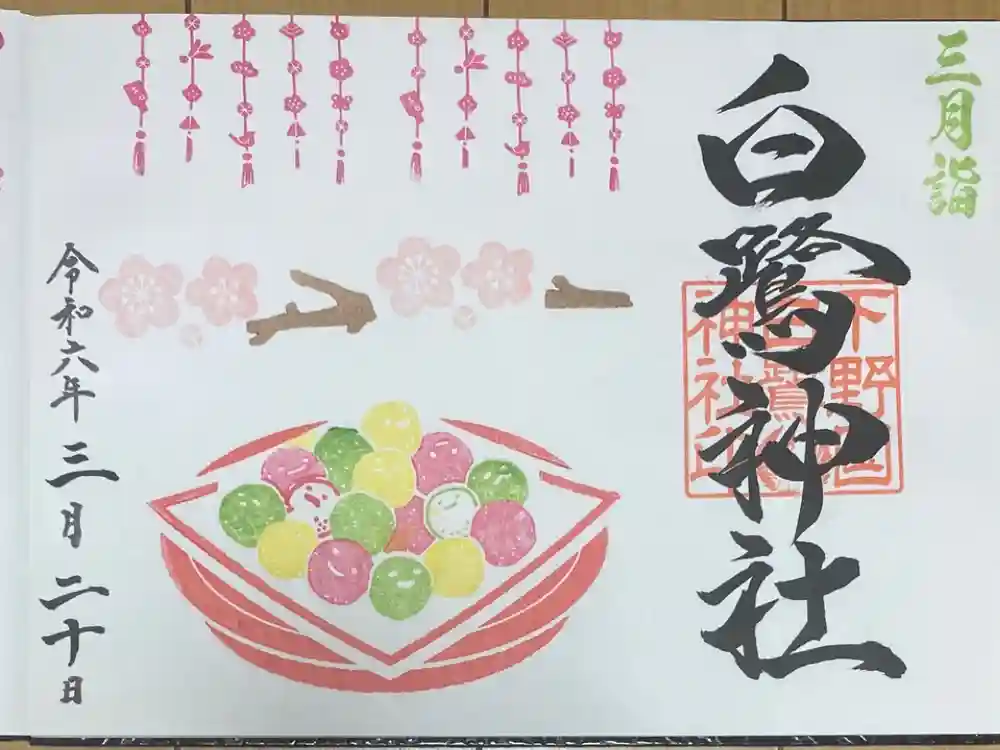 三月詣
白鷺神社
下野國
白鷺
神社
令和六年三月二十日